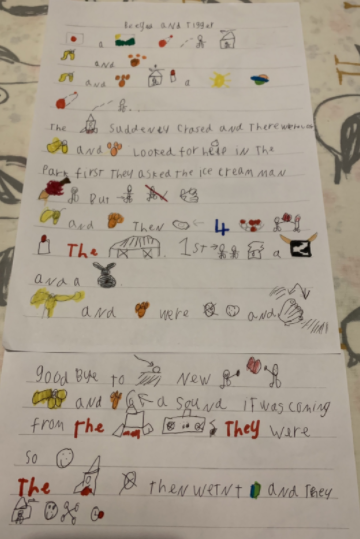 and Tigger
a
and
and a
The suddenly closed and there
and Looked for help in The
Park first They asked the ice cream man
But
and Then 4
The 1st a
and a
and were and
good Bye to New
and a sound it was coming
from The They were
so
The then went and They